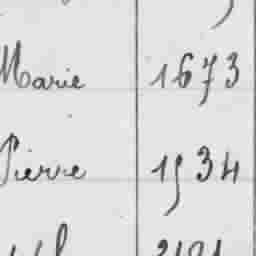 Marie 1673
Pierre 1534